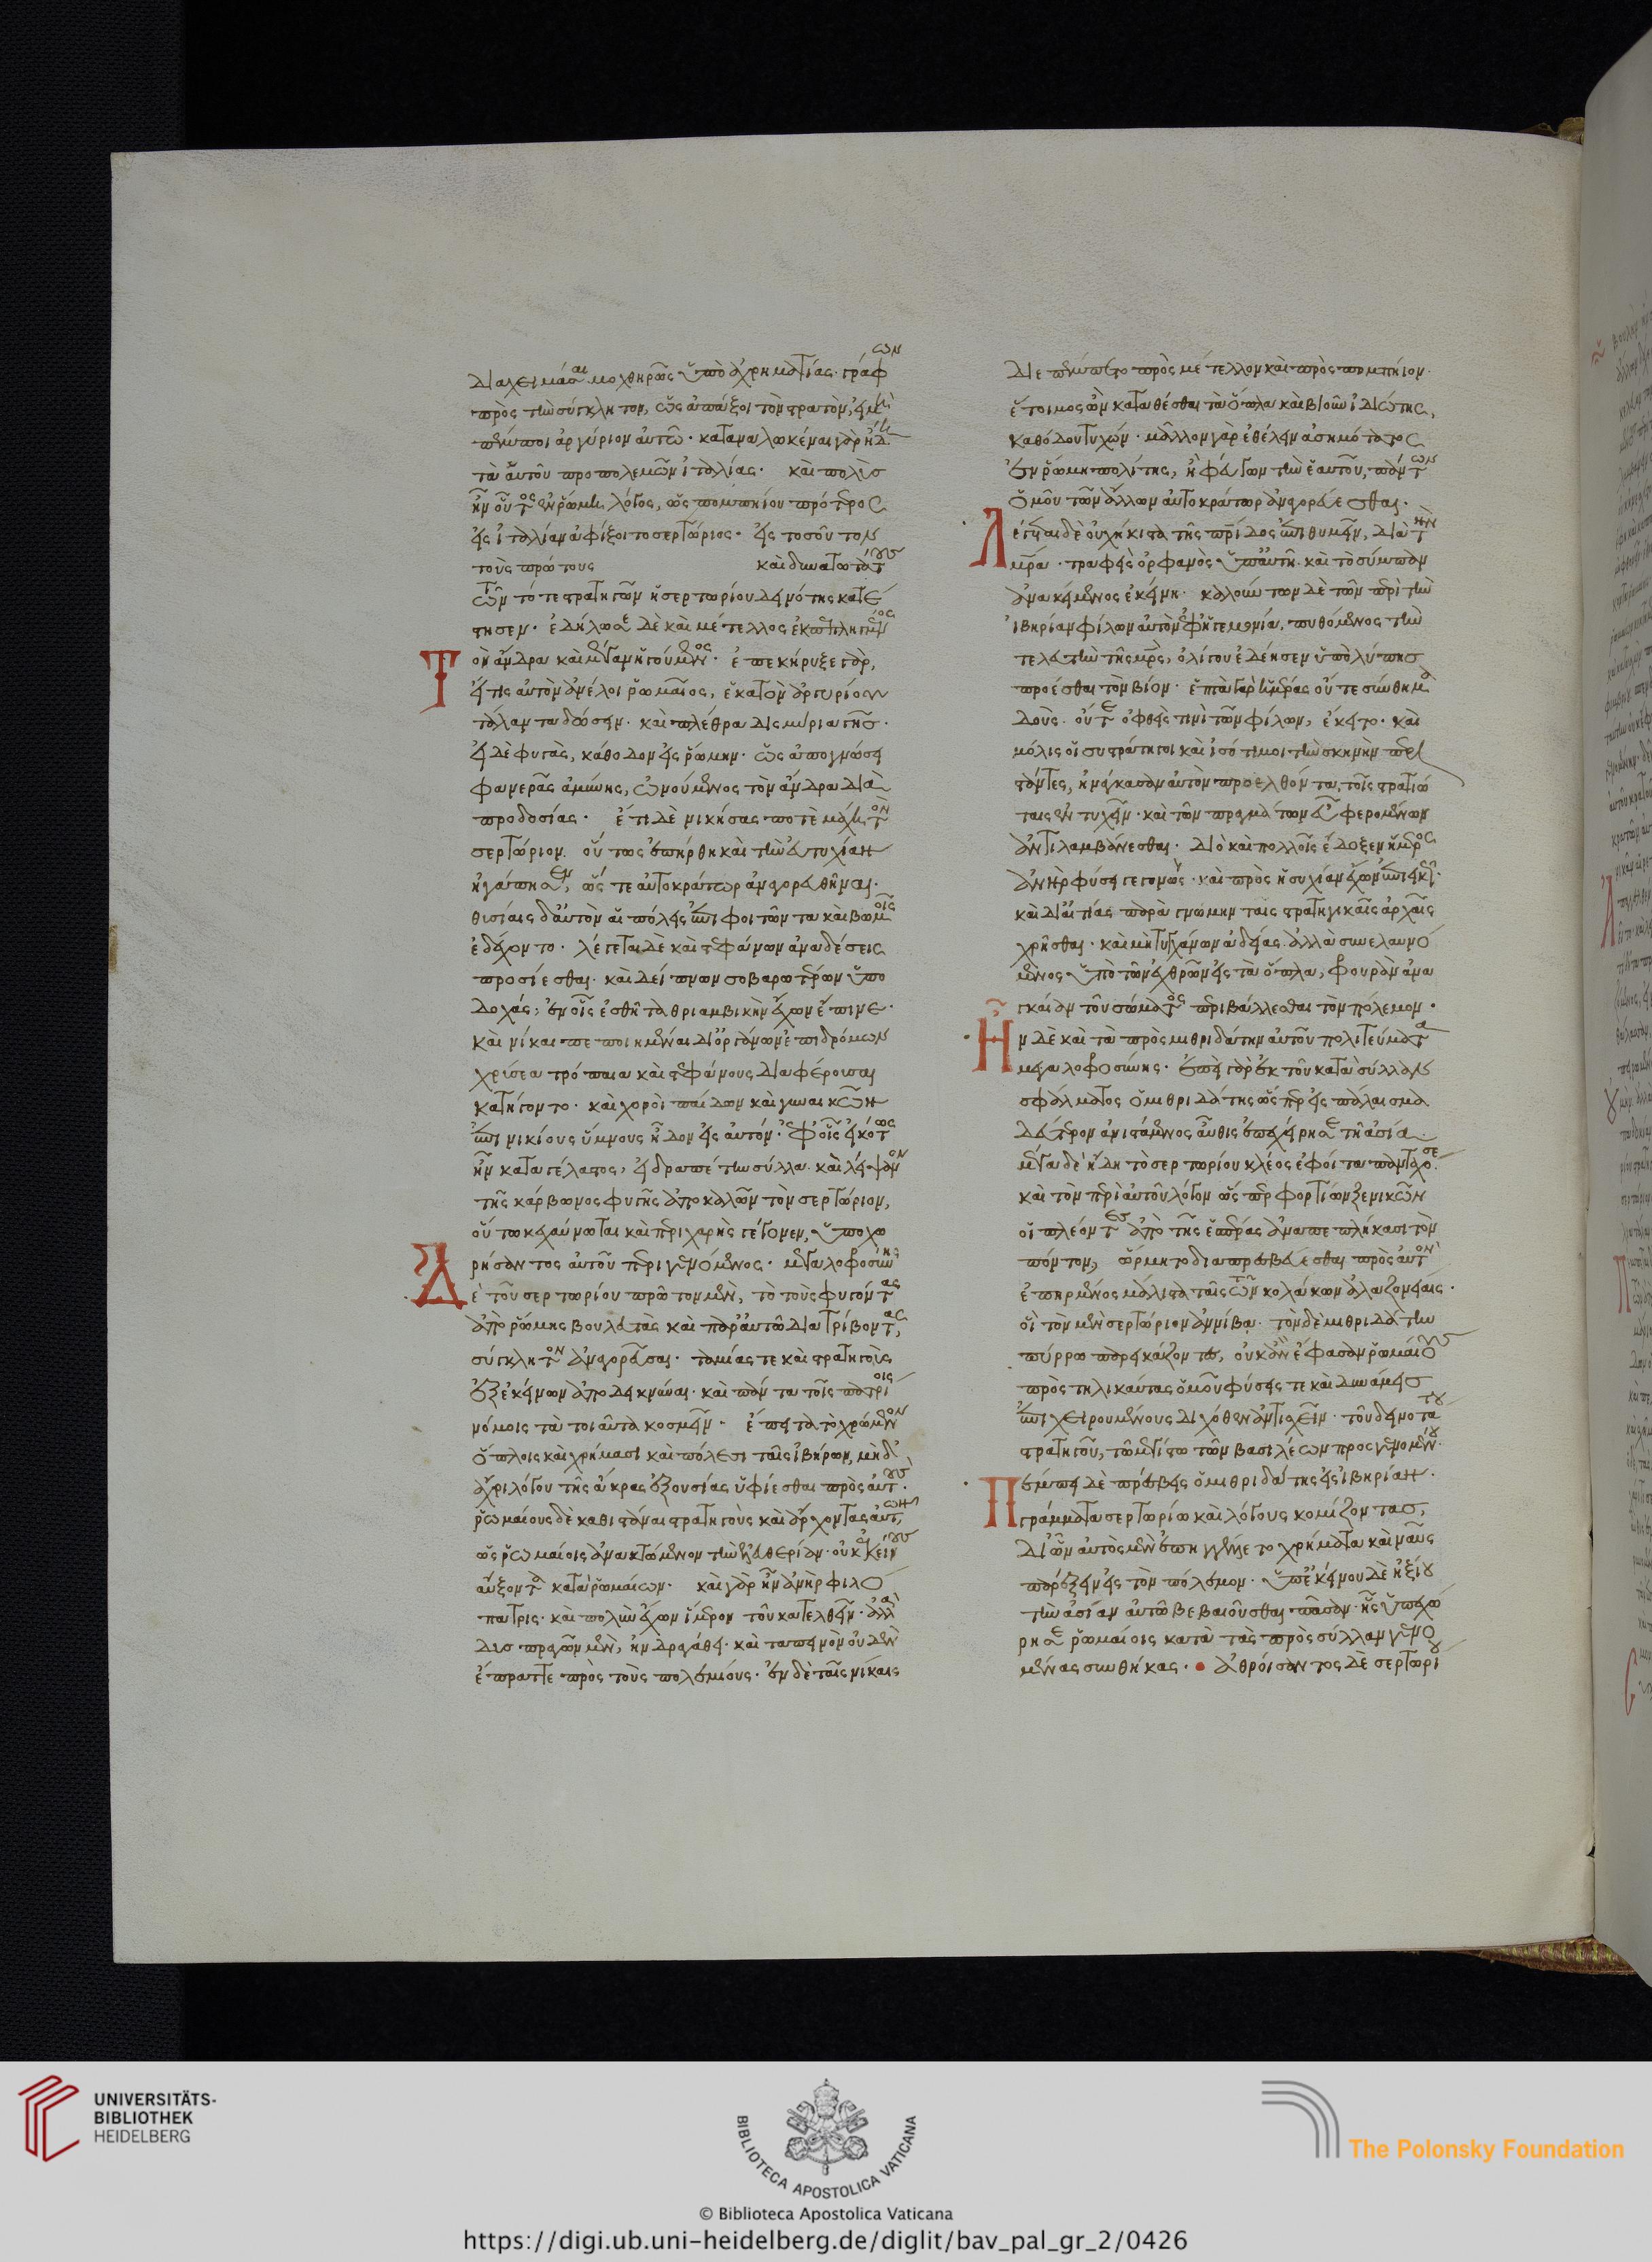 διαχειμάσαι μοχθηρῶς ὑπὸ ἀχρηματίας· γράφων
πρὸς τὴν σύγκλητον, ὡς ἀπάξοι τὸν στρατὸν, εἰ μὴ
πέμποι ἀργύριον αὐτῶ· καταναλωκέναι γὰρ ἤδη
τὰ αὑτοῦ προπολεμῶν ἰταλίας· καὶ πολὺς
ἦν οὗτος ἐν ῥώμη λόγος, ὡς πομπηίου πρότερος
εἰς ἰταλίαν ἀφίξοιτο σερτώριος· εἰς τοσοῦτον
τοὺς πρώτους καὶ δυνατωτάτους
τῶν τότε στρατηγῶν ἡ σερτωρίου δεινότης κατέ
στησεν· ἐδήλωσε δὲ καὶ μέτελλος ἐκπεπληγμένος
Τὸν ἄνδρα καὶ μέγαν ἡγούμενος· ἐπεκήρυξε γὰρ,
εἴ τις αὐτὸν ἀνέλοι ῥωμαῖος, ἑκατὸν ἀργυρίου
τάλαντα δώσειν· καὶ πλέθρα δισμύρια γῆς·
εἰ δὲ φυγὰς, κάθοδον εἰς ῥώμην· ὡς ἀπογνώσει
φανερᾶς ἀμύνης, ὠνούμενος τὸν ἄνδρα διὰ
προδοσίας· ἔτι δὲ νικήσας ποτὲ μάχη τὸν
σερτώριον· οὕτως ἐπήρθη καὶ τὴν εὐτυχίαν
ἠγάπησεν, ὥστε αὐτοκράτωρ ἀναγορευθῆναι·
θυσίαις δ' αὐτὸν αἱ πόλεις ἐπιφοιτῶντα καὶ βωμοῖς
ἐδέχοντο· λέγεται δὲ καὶ στεφάνων ἀναδέσεις
προσίεσθαι· καὶ δείπνων σοβαρωτέρων ὑπο
δοχάς, ἐν οἷς ἐσθῆτα θριαμβικὴν ἔχων ἔπινε·
καὶ νῖκαι πεποιημέναι δι' ὀργάνων ἐπιδρόμων
χρύσεα τρόπαια καὶ στεφάνους διαφέρουσαι
κατήγοντο· καὶ χοροὶ παίδων καὶ γυναικῶν
ἐπινικίους ὕμνους ᾖδον εἰς αὐτόν· ἐφ' οἷς εἰκότως
ἦν καταγέλαστος, εἰ δραπέτην σύλλα· καὶ λείψανον
τῆς κάρβωνος φυγῆς ἀποκαλῶν τὸν σερτώριον,
οὕτω κεχαύνωται καὶ περιχαρὴς γέγονεν, ὑποχω
ρήσαντος αὐτοῦ περιγενόμενος· μεγαλοφροσύνης
Δὲ τοῦ σερτωρίου πρῶτον μὲν, τὸ τοὺς φυγόντας
ἀπὸ ῥώμης βουλευτὰς καὶ παρ' αὐτῶ διατρίβοντας,
σύγκλητον ἀναγορεῦσαι· ταμίας τε καὶ στρατηγοὺς
ἐξ ἐκείνων ἀποδεικνύναι· καὶ πάντα τοῖς πατρίοις
νόμοις τὰ τοιαῦτα κοσμεῖν· ἔπειτα τὸ χρώμενον
ὅπλοις καὶ χρήμασι καὶ πόλεσι ταῖς ἰβήρων, μηδ'
ἄχρι λόγου τῆς ἄκρας ἐξουσίας ὑφίεσθαι πρὸς αὐτούς·
ῥωμαίους δὲ καθιστάναι στρατηγοὺς καὶ ἄρχοντας αὐτῶν,
ὡς ῥωμαίοις ἀνακτώμενον τὴν ἐλευθερίαν· οὐκ ἐκείνους
αὔξοντα κατὰ ῥωμαίων· καὶ γὰρ ἦν ἀνὴρ φιλό
πατρις· καὶ πολὺν ἔχων ἵμερον τοῦ κατελθεῖν· ἀλλὰ
δυσπραγῶν μὲν, ἠνδραγάθει· καὶ ταπεινὸν οὐδὲν
ἔπραττε πρὸς τοὺς πολεμίους· ἐν δὲ ταῖς νίκαις
διεπέμπετο πρὸς μέτελλον καὶ πρὸς πομπήιον·
ἕτοιμος ὢν καταθέσθαι τὰ ὅπλα καὶ βιοῦν ἰδιώτης,
καθόδου τυχών· μᾶλλον γὰρ ἐθέλειν ἀσημότατος
ἐν ῥώμη πολίτης, ἢ φεύγων τὴν ἑαυτοῦ, πάντων
ὁμοῦ τῶν ἄλλων αὐτοκράτωρ ἀναγορεύεσθαι·
Λέγεται δὲ οὐχ ἥκιστα τῆς πρίδος ἐπιθυμεῖν, διὰ τὴν
μρα· τραφεὶς ὀρφανὸς ὑπ' αὐτῆ· καὶ τὸ σύμπαν
ἀνακείμενος ἐκείνη· καλούντων δὲ τῶν περὶ τὴν
ἰβηρίαν φίλων αὐτὸν ἐφ' ἡγεμονία, πυθόμενος τὴν
τελευτὴν τῆς μρς, ὀλίγου ἐδέησεν ὑπὸ λύπης
προέσθαι τὸν βίον· ἑπτὰ γὰρ ἡμέρας οὔτε σύνθημα
δούς· οὔτε ὀφθείς τινι τῶν φίλων, ἔκειτο· καὶ
μόλις οἱ συστράτηγοι καὶ ἰσότιμοι τὴν σκηνὴν περι
στάντες, ἠνάγκασαν αὐτὸν προελθόντα, τοῖς στρατιώ
ταις ἐντυχεῖν· καὶ τῶν πραγμάτων εὖ φερομένων
ἀντιλαμβάνεσθαι· διὸ καὶ πολλοῖς ἔδοξεν ἥμερος
ἀνὴρ φύσει γεγονὼς· καὶ πρὸς ἡσυχίαν ἔχων ἐπιεικῶς·
καὶ δι' αἰτίας παρὰ γνώμην ταῖς στρατηγικαῖς ἀρχαῖς
χρῆσθαι· καὶ μὴ τυγχάνων ἀδείας· ἀλλὰ συνελαυνό
μενος ὑπὸ τῶν ἐχθρῶν εἰς τὰ ὅπλα, φρουρὰν ἀνα
γκαίαν τοῦ σώματος περιβάλλεσθαι τὸν πόλεμον·
Ἦν δὲ καὶ τὰ πρὸς μιθριδάτην αὐτοῦ πολιτεύματα
μεγαλοφροσύνης· ἐπεὶ γὰρ ἐκ τοῦ κατὰ σύλλαν
σφάλματος ὁ μιθριδάτης ὥσπερ εἰς πάλαισμα
δεύτερον ἀνιστάμενος αὖθις ἐπεχείρησε τῆ ἀσία·
μέγα δὲ ἤδη τὸ σερτωρίου κλέος ἐφοίτα πανταχόσε·
καὶ τὸν περὶ αὐτοῦ λόγον ὥσπερ φορτίων ξενικῶν
οἱ πλέοντες ἀπὸ τῆς ἑσπέρας ἀναπεπλήκασι τὸν
πόντον, ὥρμητο διαπρεσβεύεσθαι πρὸς αὐτὸν
ἐπηρμένος μάλιστα ταῖς τῶν κολάκων ἀλαζονείαις·
οἳ τὸν μὲν σερτώριον ἀννίβα· τὸν δὲ μιθριδάτην
πύρρω παρεικάζοντες, οὐκ ἂν ἔφασαν ῥωμαίους
πρὸς τηλικαύτας ὁμοῦ φύσεις τε καὶ δυνάμεις
ἐπιχειρουμένους διχόθεν ἀντισχεῖν· τοῦ δεινοτάτου
στρατηγοῦ, τῶ μεγίστω τῶν βασιλέων προσγενομένου·
Πέμπει δὲ πρέσβεις ὁ μιθριδάτης εἰς ἰβηρίαν·
γράμματα σερτωρίω καὶ λόγους κομίζοντας,
δι' ὧν αὐτὸς μὲν ἐπηγγέλλετο χρήματα καὶ ναῦς
παρέξειν εἰς τὸν πόλεμον· ὑπ' ἐκείνου δὲ ἠξίου
τὴν ἀσίαν αὐτῶ βεβαιοῦσθαι πᾶσαν· ἧς ὑπεχώ
ρησε ῥωμαίοις κατὰ τὰς πρὸς σύλλαν γενο
μένας συνθήκας· ἀθροίσαντος δὲ σερτωρί
UNIVERSITÄTS-
BIBLIOTHEK
HEIDELBERG
BIBLIOTECA APOSTOLICA VATICANA
The Polonsky Foundation
© Biblioteca Apostolica Vaticana
https://digi.ub.uni-heidelberg.de/diglit/bav_pal_gr_2/0426